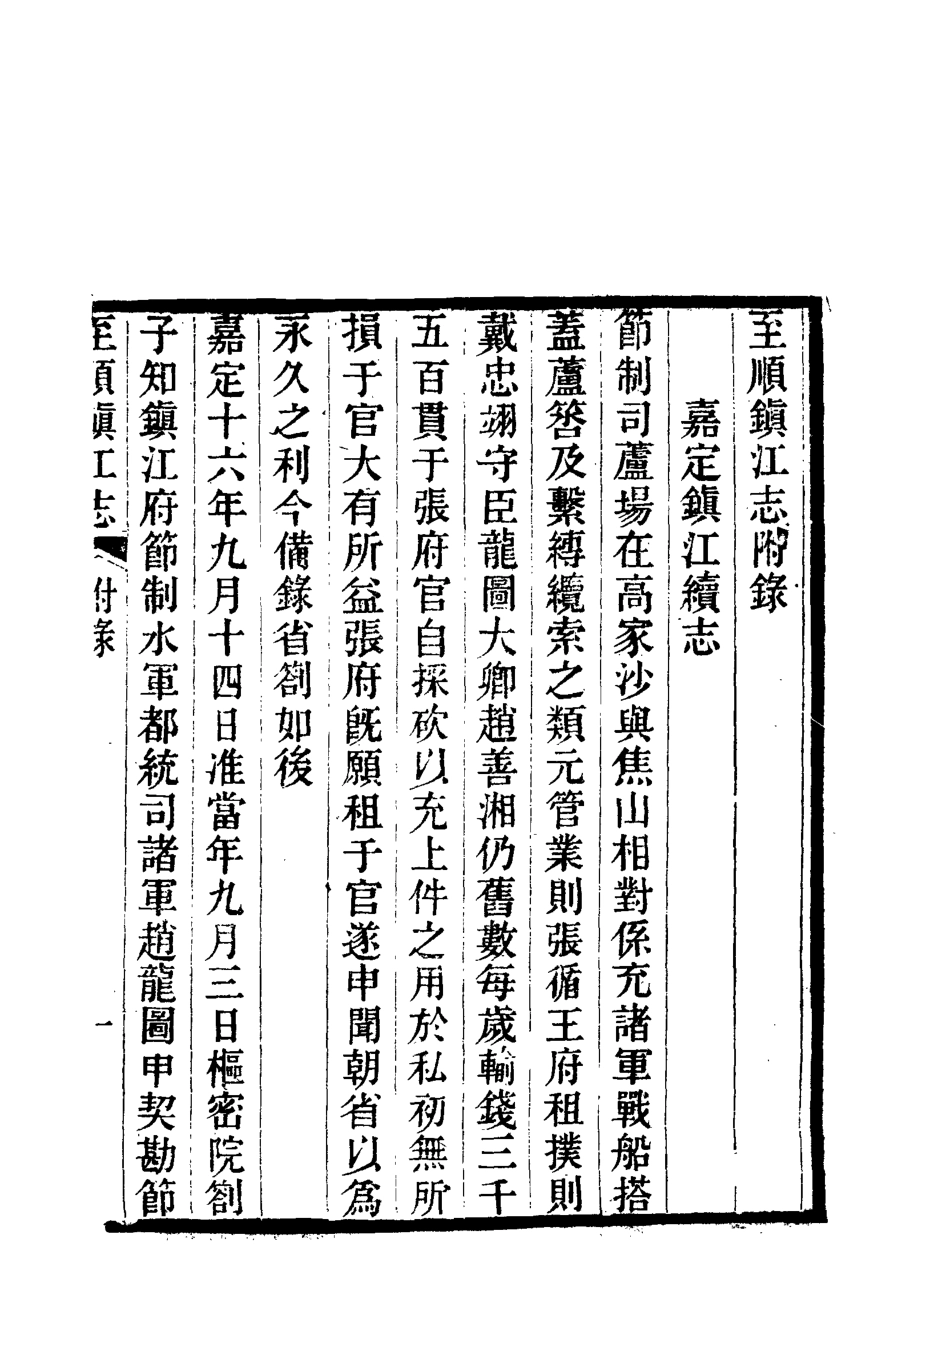 至順鎮江志附錄
嘉定鎮江續志
節制司蘆場在高家沙與焦山相對係充諸軍戰船搭
蓋蘆䉬及繫縛纜索之類元管業則張循王府租撲則
戴忠翊守臣龍圖大卿趙善湘仍舊數每歲輸錢三千
五百貫于張府官自採砍以充上件之用於私初無所
損于官大有所益張府旣願租于官遂申聞朝省以爲
永久之利今備錄省劄如後
嘉定十六年九月十四日准當年九月三日樞密院劄
子知鎮江府節制水軍都統司諸軍趙龍圖申契勘節
至順鎮江志 附錄 一